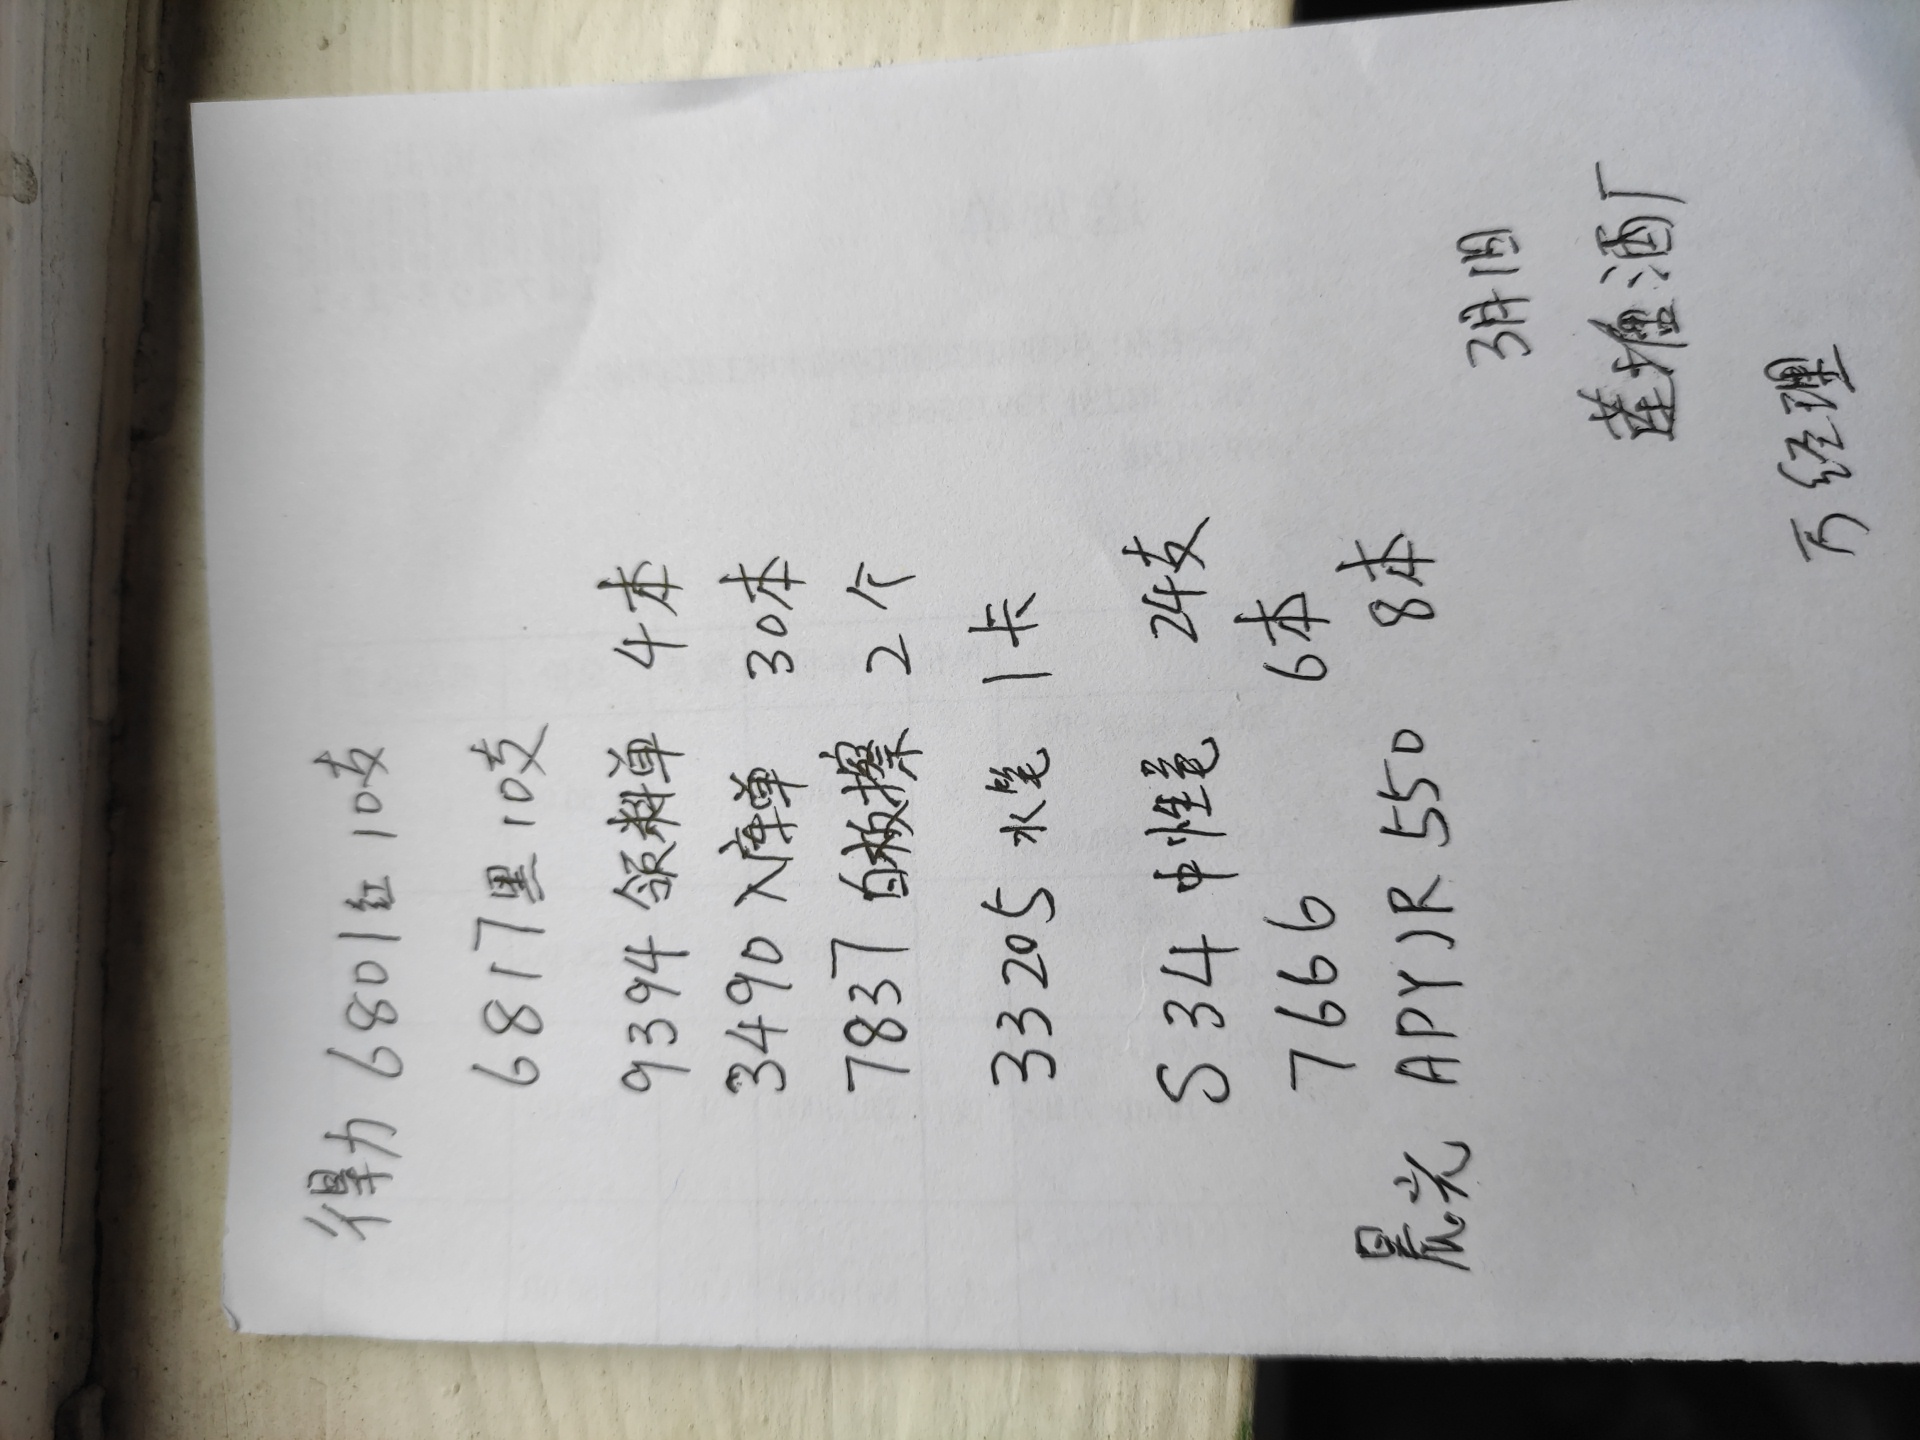 得力 6801红 10支
6817黑 10支
9394 领料单 4本
3490 入库单 30本
7837 白板擦 2个
33205 水笔 1卡
S34 中性笔 24支
7666 6本
晨光 APYJR550 8本
3月1日
酒厂
万经理